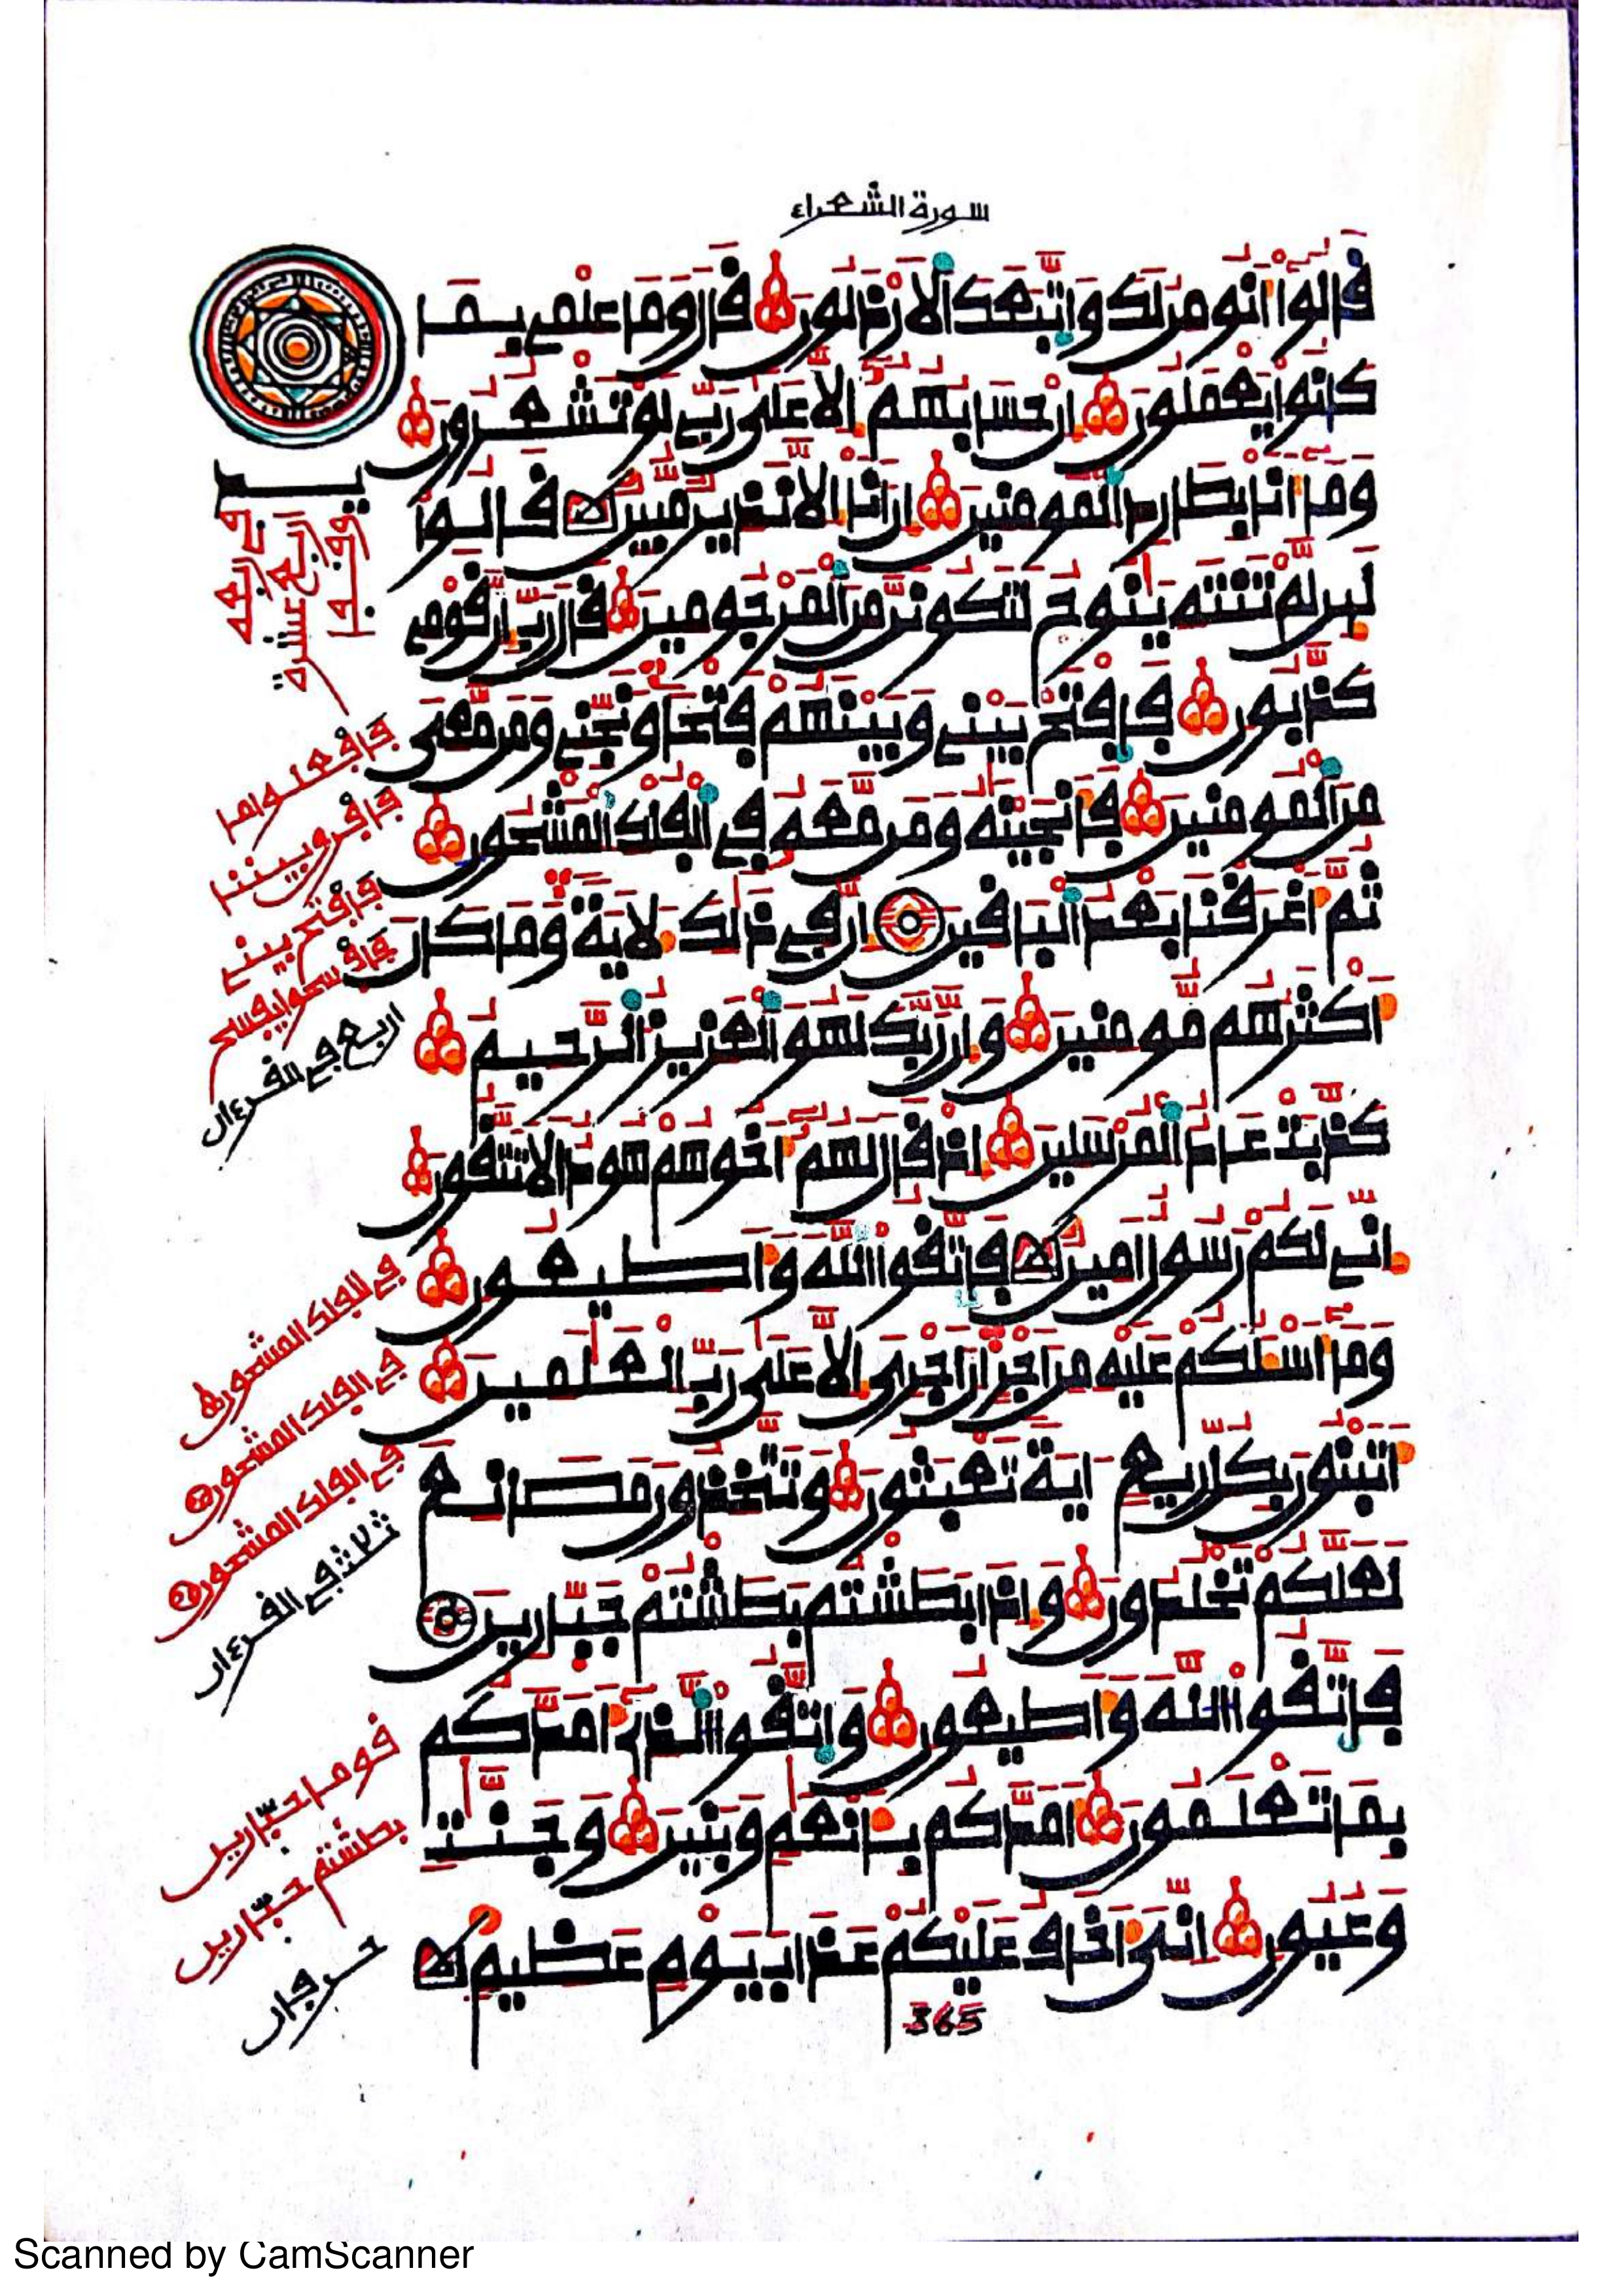 سورة الشعراء
قَالُوٓا۟ أَنُومِنُ لَكَ وَاتَّبَعَكَ ٱلَارْذَلُونَ قَالَ وَمَا عِلْمِے بِمَا
كَانُوا۟ يَعْمَلُونَ إِنْ حِسَابُهُمُۥٓ إِلَّا عَلَىٰ رَبِّے لَوْ تَشْعُرُونَ
وَمَآ أَنَا بِطَارِدِ ٱلْمُومِنِينَ إِنَ اَنَا إِلَّا نَذِيرٌ مُّبِينٌ قَالُوا۟
لَئِن لَّمْ تَنتَهِ يَٰنُوحُ لَتَكُونَنَّ مِنَ ٱلْمَرْجُومِينَ قَالَ رَبِّ إِنَّ قَوْمِے
كَذَّبُونِ فَافْتَحْ بَيْنِے وَبَيْنَهُمْ فَتْحًا وَنَجِّنِے وَمَن مَّعِى
مِنَ ٱلْمُومِنِينَ فَأَنجَيْنَٰهُ وَمَن مَّعَهُۥ فِے ٱلْفُلْكِ ٱلْمَشْحُونِ
ثُمَّ أَغْرَقْنَا بَعْدُ ٱلْبَاقِينَ إِنَّ فِے ذَٰلِكَ لَأٓيَةً وَمَا كَانَ
أَكْثَرُهُم مُّومِنِينَ وَإِنَّ رَبَّكَ لَهُوَ ٱلْعَزِيزُ ٱلرَّحِيمُ
كَذَّبَتْ عَادٌ ٱلْمُرْسَلِينَ إِذْ قَالَ لَهُمُۥٓ أَخُوهُمْ هُودٌ اَلَا تَتَّقُونَ
إِنِّے لَكُمْ رَسُولٌ اَمِينٌ فَاتَّقُوا۟ ٱللَّهَ وَأَطِيعُونِ
وَمَآ أَسْـَٔلُكُمْ عَلَيْهِ مِنَ اَجْرٍ إِنَ اَجْرِىَ إِلَّا عَلَىٰ رَبِّ ٱلْعَٰلَمِينَ
أَتَبْنُونَ بِكُلِّ رِيعٍ اٰيَةً تَعْبَثُونَ وَتَتَّخِذُونَ مَصَانِعَ
لَعَلَّكُمْ تَخْلُدُونَ وَإِذَا بَطَشْتُم بَطَشْتُمْ جَبَّارِينَ
فَاتَّقُوا۟ ٱللَّهَ وَأَطِيعُونِ وَاتَّقُوا۟ ٱلَّذِےٓ أَمَدَّكُم
بِمَا تَعْلَمُونَ أَمَدَّكُم بِأَنْعَٰمٍ وَبَنِينَ وَجَنَّٰتٍ
وَعُيُونٍ إِنِّىَ أَخَافُ عَلَيْكُمْ عَذَابَ يَوْمٍ عَظِيمٍ
365
فافعلوا ما
فافرق بيننا
فافتح بينے
فافسحوا يفسح
اربع فے القرءان
فے الفلك المشحون
فے الفلك المشحون
فے الفلك المشحون
ثلاث فے القرءان
قوما جبّارين
بطشتم جبّارين
حرفان
Scanned by CamScanner